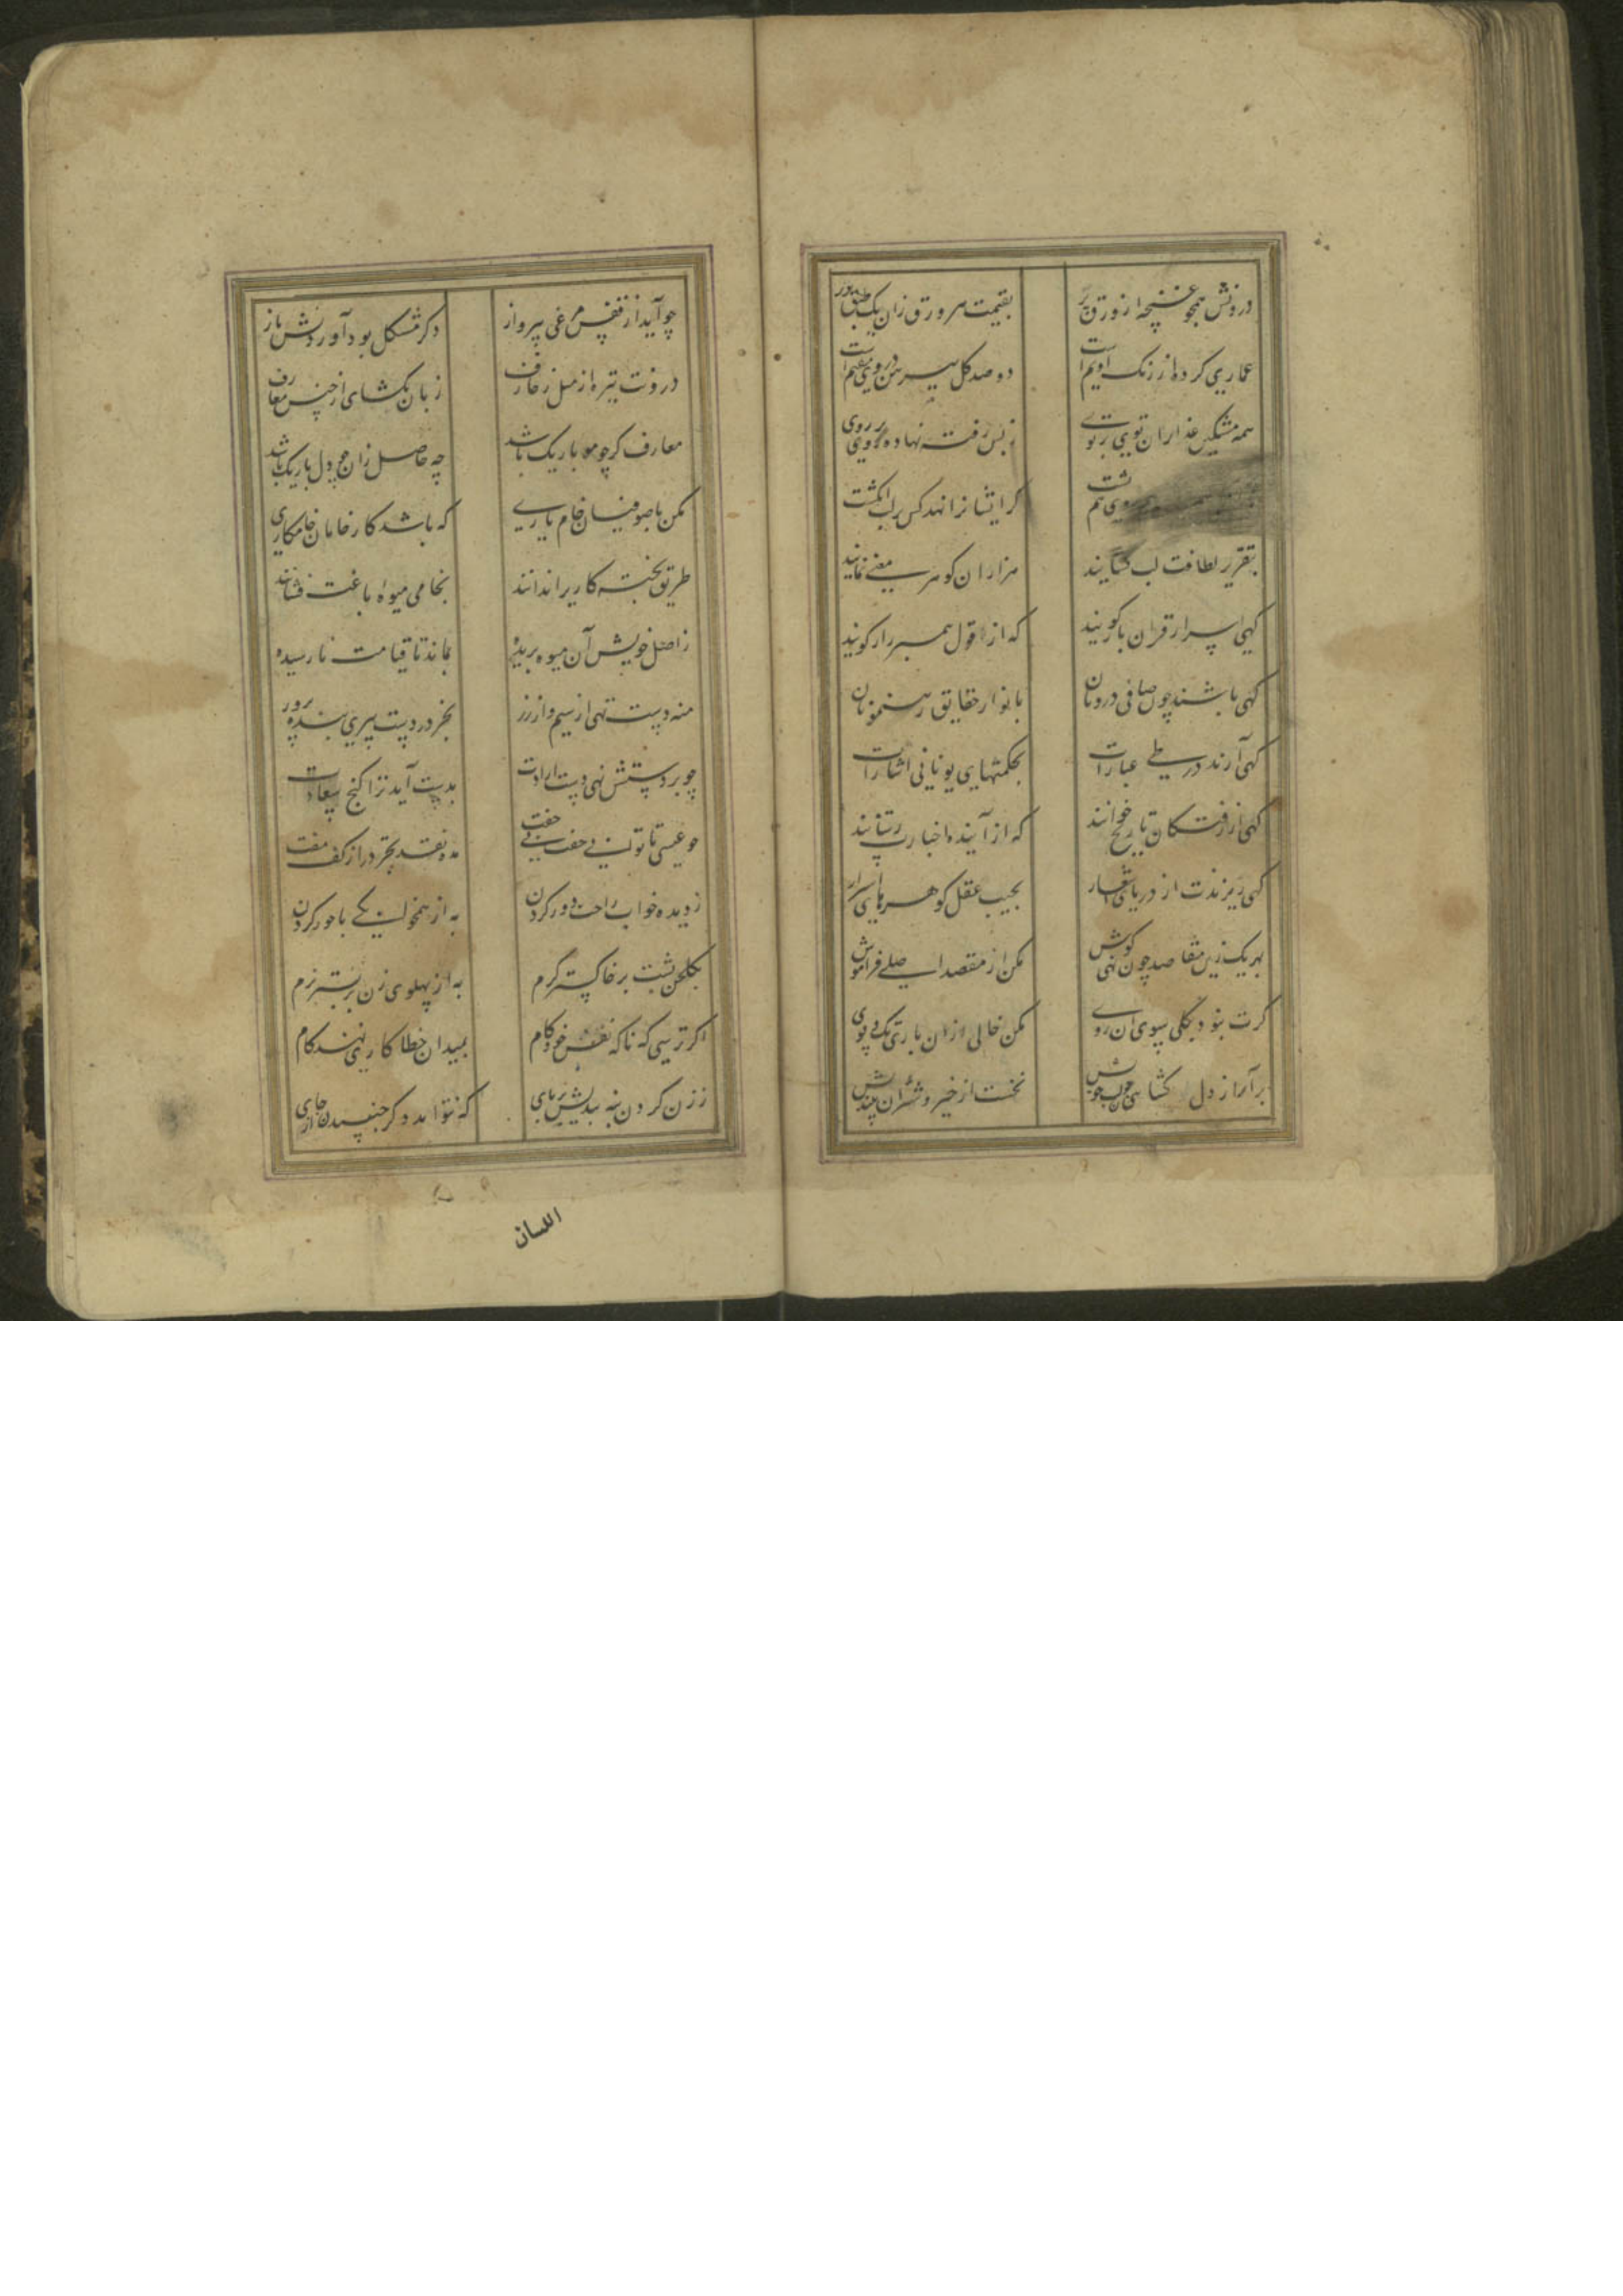 درونش همچو غنچه از ورق پر بقیمت هر ورق زان یک طبق در
عماری کرده از رنگ ادیم است دو صد گل پیرهن در وی مقیم است
همه مشکین عذاران توی بر توی زبس رقت نهاده روی بر روی
روی هم پشت گر ایشانرا نهد کس بر لب انگشت
بتقریر لطافت لب گشایند هزاران گوهر معنی نمایند
گهی اسرار قران باز گویند که از قول پیمبر راز گویند
گهی باشند چون صافی درونان بانوار حقایق رهنمونان
گهی آرند در طی عبارات بحکمتهای یونانی اشارات
گهی از رفتگان تاریخ خوانند که از آینده اخبارت رسانند
گهی ریزندت از دریای اشعار بجیب عقل گوهرهای اسرار
بهر یک زین مقاصد چون نهی گوش مکن از مقصد اصلی فراموش
گرت نبود بکلی سوی آن روی مکن خالی ازان باری تک و پوی
نخست از خیر و شر
چو آید از قفس مرغی بپرواز دگر مشکل بود آوردنش باز
درونت تیره از میل زخارف زبان بگشای از جنس معارف
معارف گر چو مو باریک باشد چه حاصل زان چو دل تاریک باشد
مکن با صوفیان خام یاری که باشد کار خامان خامکاری
طریق پخته کاری را ندانند بخامی میوه باغت فشانند
ز اصل خویش آن میوه بریده بماند تا قیامت نارسیده
منه دست تهی از سیم و از زر بجز در دست پیری بنده پرور
چو بر دستش نهی دست ارادت بدست آید ترا گنج سعادت
چو عیسی تا توانی خفت بی جفت مده نقد تجرد از کف مفت
ز دیده خواب راحت دور کردن به از همخوابگی با حور کردن
بگلخن پشت بر خاکستر گرم به از پهلوی زن بر بستر نرم
اگر ترسی که ناگه نفس خودکام بمیدان خطا کاری نهد گام
ز زن کردن بنه بندیش بر پای که نتواند دگر جنبیدن از جای